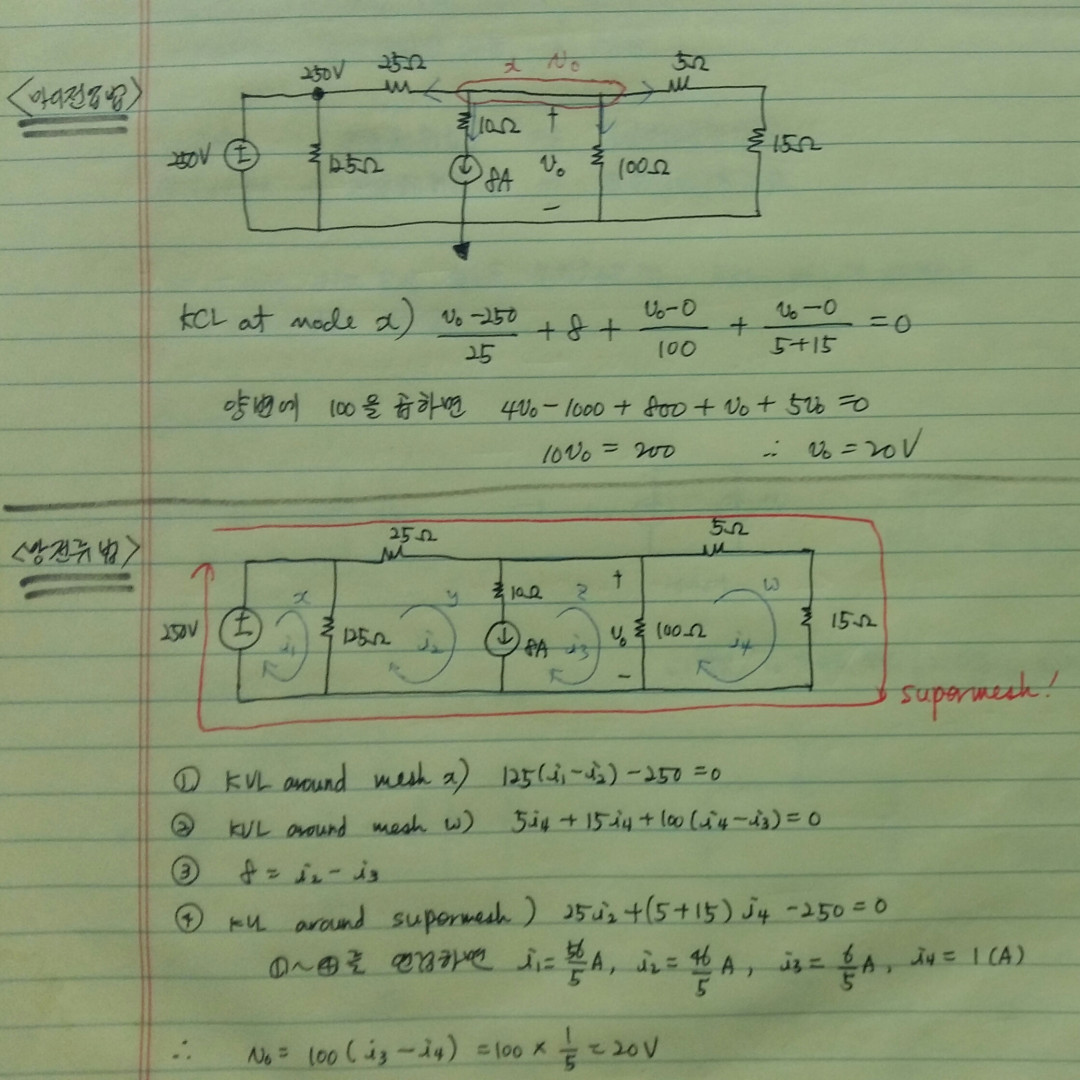 <마디전압법>
250V 25Ω x v₀ 5Ω
250V 125Ω 10Ω 8A + v₀ − 100Ω 15Ω
KCL at node x) (v₀-250)/25 + 8 + (v₀-0)/100 + (v₀-0)/(5+15) = 0
양변에 100을 곱하면 4v₀-1000+800+v₀+5v₀=0
10v₀ = 200 ∴ v₀ = 20V
<망전류법>
25Ω 5Ω
250V x i₁ 125Ω y i₂ 10Ω 8A z i₃ + v₀ − 100Ω w i₄ 15Ω
supermesh!
① KVL around mesh x) 125(i₁-i₂)-250=0
② KVL around mesh w) 5i₄+15i₄+100(i₄-i₃)=0
③ 8 = i₂-i₃
④ KVL around supermesh) 25i₂+(5+15)i₄-250=0
①~④를 연립하면 i₁=56/5 A, i₂=46/5 A, i₃=6/5 A, i₄=1(A)
∴ v₀ = 100(i₃-i₄) = 100 × 1/5 = 20V